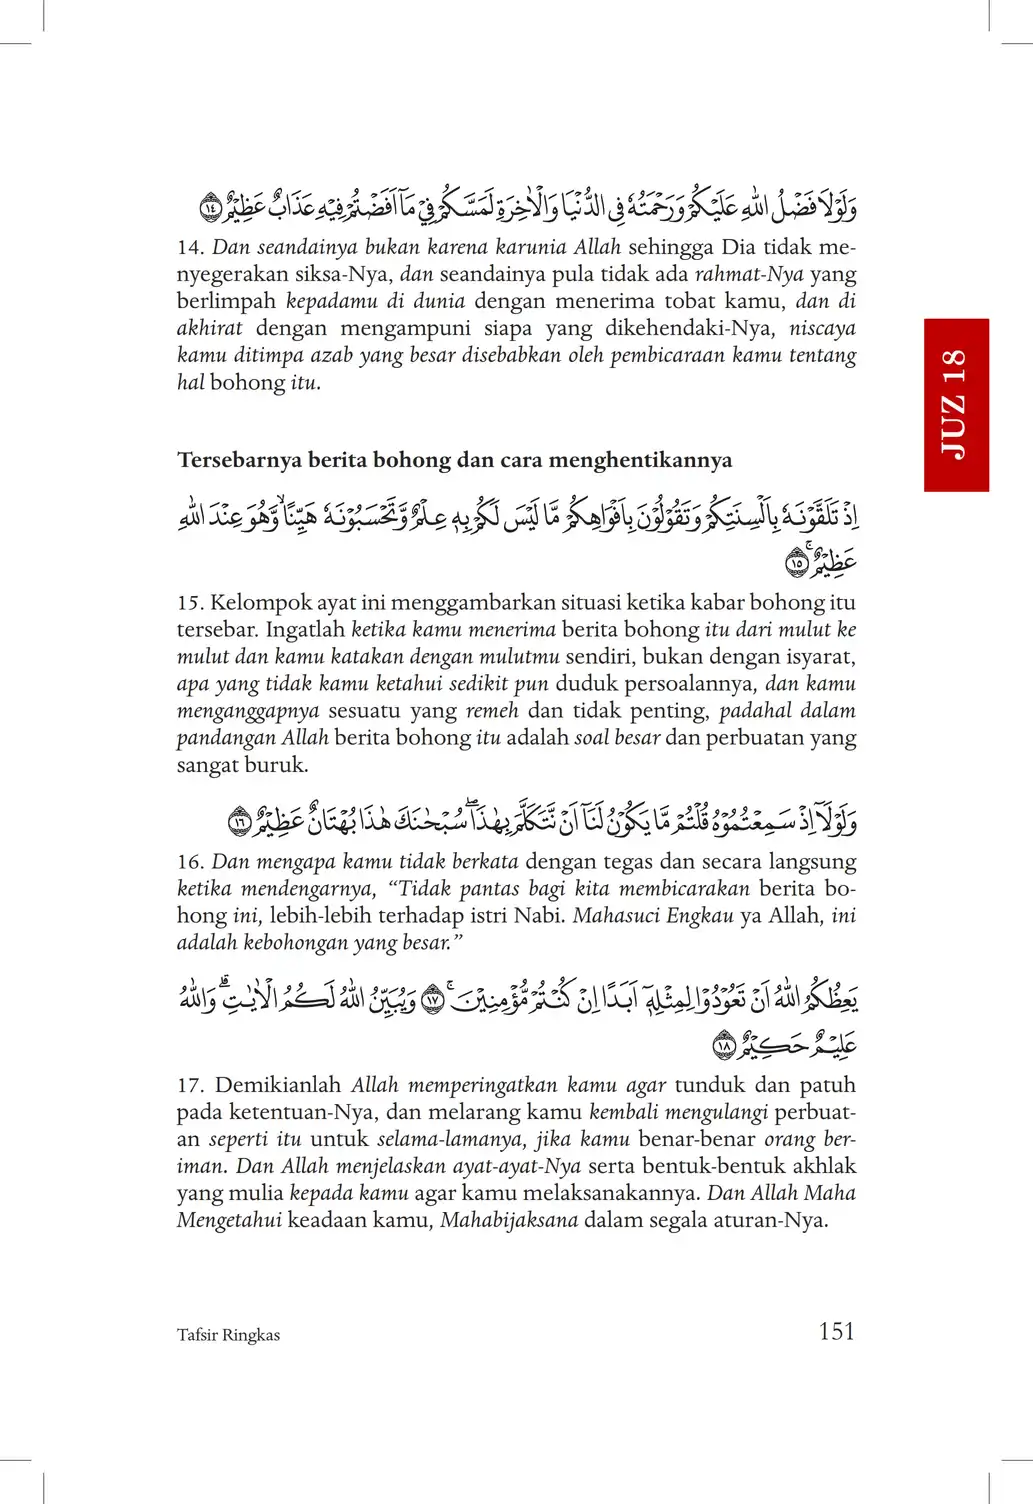 وَلَوْلَا فَضْلُ اللّٰهِ عَلَيْكُمْ وَرَحْمَتُهٗ فِى الدُّنْيَا وَالْاٰخِرَةِ لَمَسَّكُمْ فِيْ مَآ اَفَضْتُمْ فِيْهِ عَذَابٌ عَظِيْمٌ ۝١٤
14. Dan seandainya bukan karena karunia Allah sehingga Dia tidak me-
nyegerakan siksa-Nya, dan seandainya pula tidak ada rahmat-Nya yang
berlimpah kepadamu di dunia dengan menerima tobat kamu, dan di
akhirat dengan mengampuni siapa yang dikehendaki-Nya, niscaya
kamu ditimpa azab yang besar disebabkan oleh pembicaraan kamu tentang
hal bohong itu.
JUZ 18
Tersebarnya berita bohong dan cara menghentikannya
اِذْ تَلَقَّوْنَهٗ بِاَلْسِنَتِكُمْ وَتَقُوْلُوْنَ بِاَفْوَاهِكُمْ مَّا لَيْسَ لَكُمْ بِهٖ عِلْمٌ وَّتَحْسَبُوْنَهٗ هَيِّنًاۙ وَّهُوَ عِنْدَ اللّٰهِ
عَظِيْمٌ ۚ ۝١٥
15. Kelompok ayat ini menggambarkan situasi ketika kabar bohong itu
tersebar. Ingatlah ketika kamu menerima berita bohong itu dari mulut ke
mulut dan kamu katakan dengan mulutmu sendiri, bukan dengan isyarat,
apa yang tidak kamu ketahui sedikit pun duduk persoalannya, dan kamu
menganggapnya sesuatu yang remeh dan tidak penting, padahal dalam
pandangan Allah berita bohong itu adalah soal besar dan perbuatan yang
sangat buruk.
وَلَوْلَآ اِذْ سَمِعْتُمُوْهُ قُلْتُمْ مَّا يَكُوْنُ لَنَآ اَنْ نَّتَكَلَّمَ بِهٰذَاۖ سُبْحٰنَكَ هٰذَا بُهْتَانٌ عَظِيْمٌ ۝١٦
16. Dan mengapa kamu tidak berkata dengan tegas dan secara langsung
ketika mendengarnya, “Tidak pantas bagi kita membicarakan berita bo-
hong ini, lebih-lebih terhadap istri Nabi. Mahasuci Engkau ya Allah, ini
adalah kebohongan yang besar.”
يَعِظُكُمُ اللّٰهُ اَنْ تَعُوْدُوْا لِمِثْلِهٖٓ اَبَدًا اِنْ كُنْتُمْ مُّؤْمِنِيْنَ ۚ ۝١٧ وَيُبَيِّنُ اللّٰهُ لَكُمُ الْاٰيٰتِۗ وَاللّٰهُ
عَلِيْمٌ حَكِيْمٌ ۝١٨
17. Demikianlah Allah memperingatkan kamu agar tunduk dan patuh
pada ketentuan-Nya, dan melarang kamu kembali mengulangi perbuat-
an seperti itu untuk selama-lamanya, jika kamu benar-benar orang ber-
iman. Dan Allah menjelaskan ayat-ayat-Nya serta bentuk-bentuk akhlak
yang mulia kepada kamu agar kamu melaksanakannya. Dan Allah Maha
Mengetahui keadaan kamu, Mahabijaksana dalam segala aturan-Nya.
Tafsir Ringkas
151